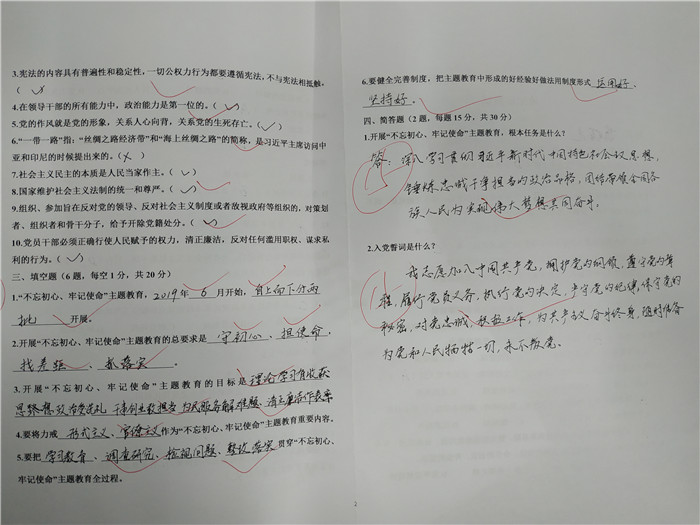 3.宪法的内容具有普遍性和稳定性，一切公权力行为都要遵循宪法，不与宪法相抵触。
（ ✓ ）
4.在领导干部的所有能力中，政治能力是第一位的。（ ✓ ）
5.党的作风就是党的形象，关系人心向背，关系党的生死存亡。（ ✓ ）
6.“一带一路”指：“丝绸之路经济带”和“海上丝绸之路”的简称，是习近平主席访问中
亚和印尼的时候提出来的。（ X ）
7.社会主义民主的本质是人民当家作主。（ ✓ ）
8.国家维护社会主义法制的统一和尊严。（ ✓ ）
9.组织、参加旨在反对党的领导、反对社会主义制度或者敌视政府等组织的，对策划
者、组织者和骨干分子，给予开除党籍处分。（ ✓ ）
10.党员干部必须正确行使人民赋予的权力，清正廉洁，反对任何滥用职权、谋求私
利的行为。（ ✓ ）
三、填空题（6 题，每空 1 分，共 20 分）
1.“不忘初心、牢记使命”主题教育，2019 年 6 月开始，自上而下分两
批 开展。
2.开展“不忘初心、牢记使命”主题教育的总要求是 守初心 、担使命 、
找差距 、抓落实 。
3.开展“不忘初心、牢记使命”主题教育的目标是 理论学习有收获
思想政治受洗礼 干事创业敢担当 为民服务解难题、清正廉洁作表率
4.要将力戒 形式主义、官僚主义 作为“不忘初心、牢记使命”主题教育重要内容。
5.要把 学习教育 、调查研究、检视问题、整改落实 贯穿“不忘初心、
牢记使命”主题教育全过程。
6.要健全完善制度，把主题教育中形成的好经验好做法用制度形式 运用好、
坚持好。
四、简答题（2 题，每题 15 分，共 30 分）
1.开展“不忘初心、牢记使命”主题教育，根本任务是什么？
答：深入学习贯彻习近平新时代中国特色社会主义思想，
锤炼忠诚干净担当的政治品格，团结带领全国各
族人民为实现伟大梦想共同奋斗。
2.入党誓词是什么？
我志愿加入中国共产党，拥护党的纲领，遵守党的章
程，履行党员义务，执行党的决定，严守党的纪律，保守党的
秘密，对党忠诚，积极工作，为共产主义奋斗终身，随时准备
为党和人民牺牲一切，永不叛党。
2